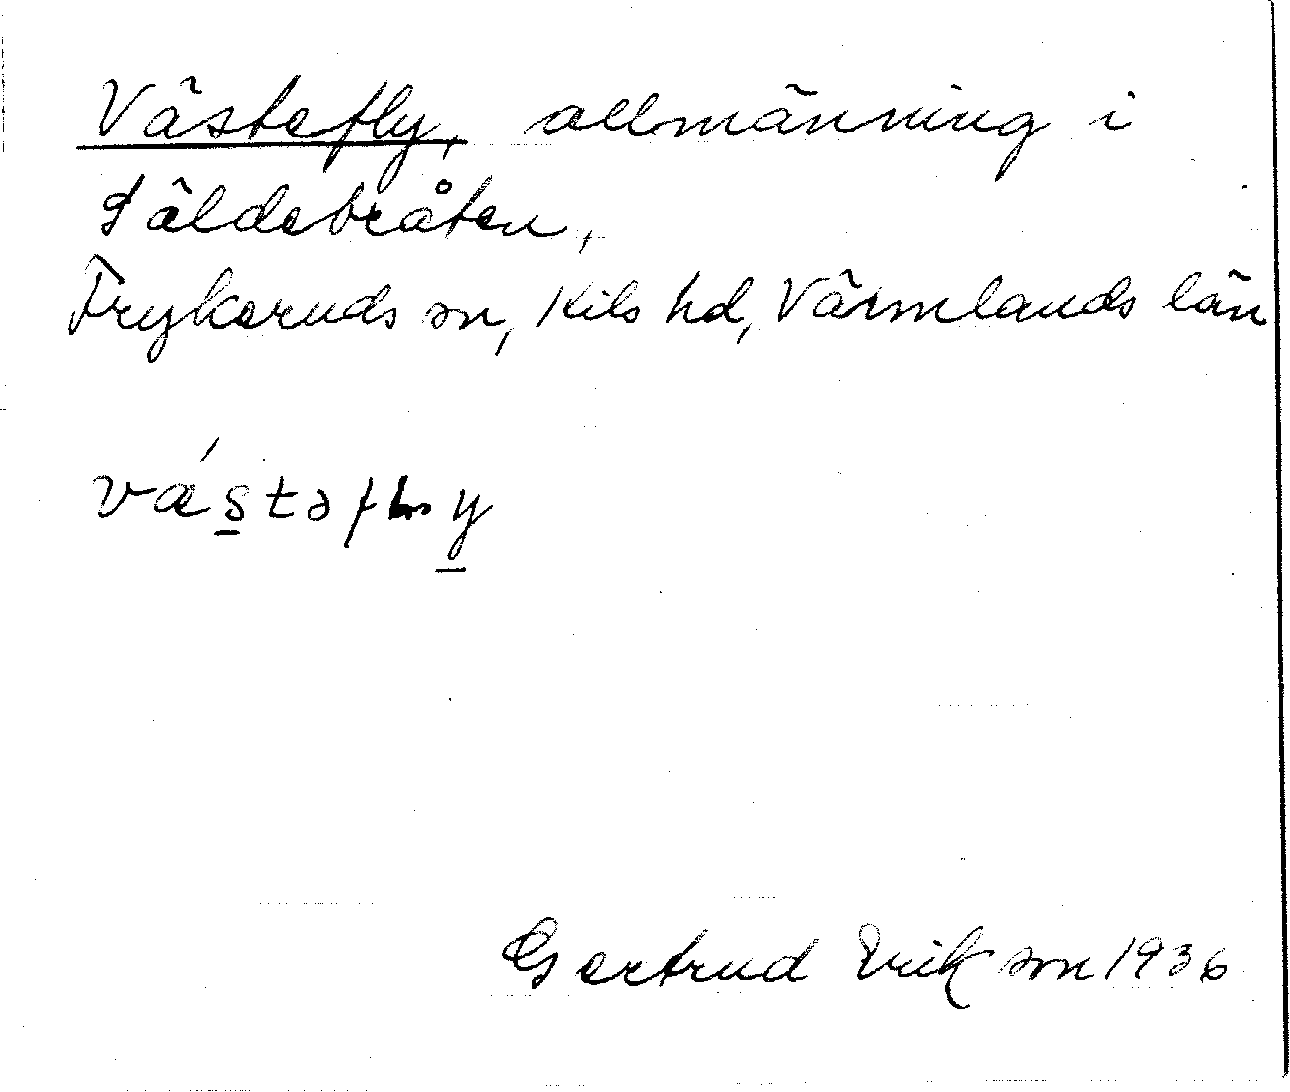 Västefly, allmänning i
Säldebråten,
Frykeruds sn, Kils hd, Värmlands län
væ´stəfly
Gertrud Erikson 1936